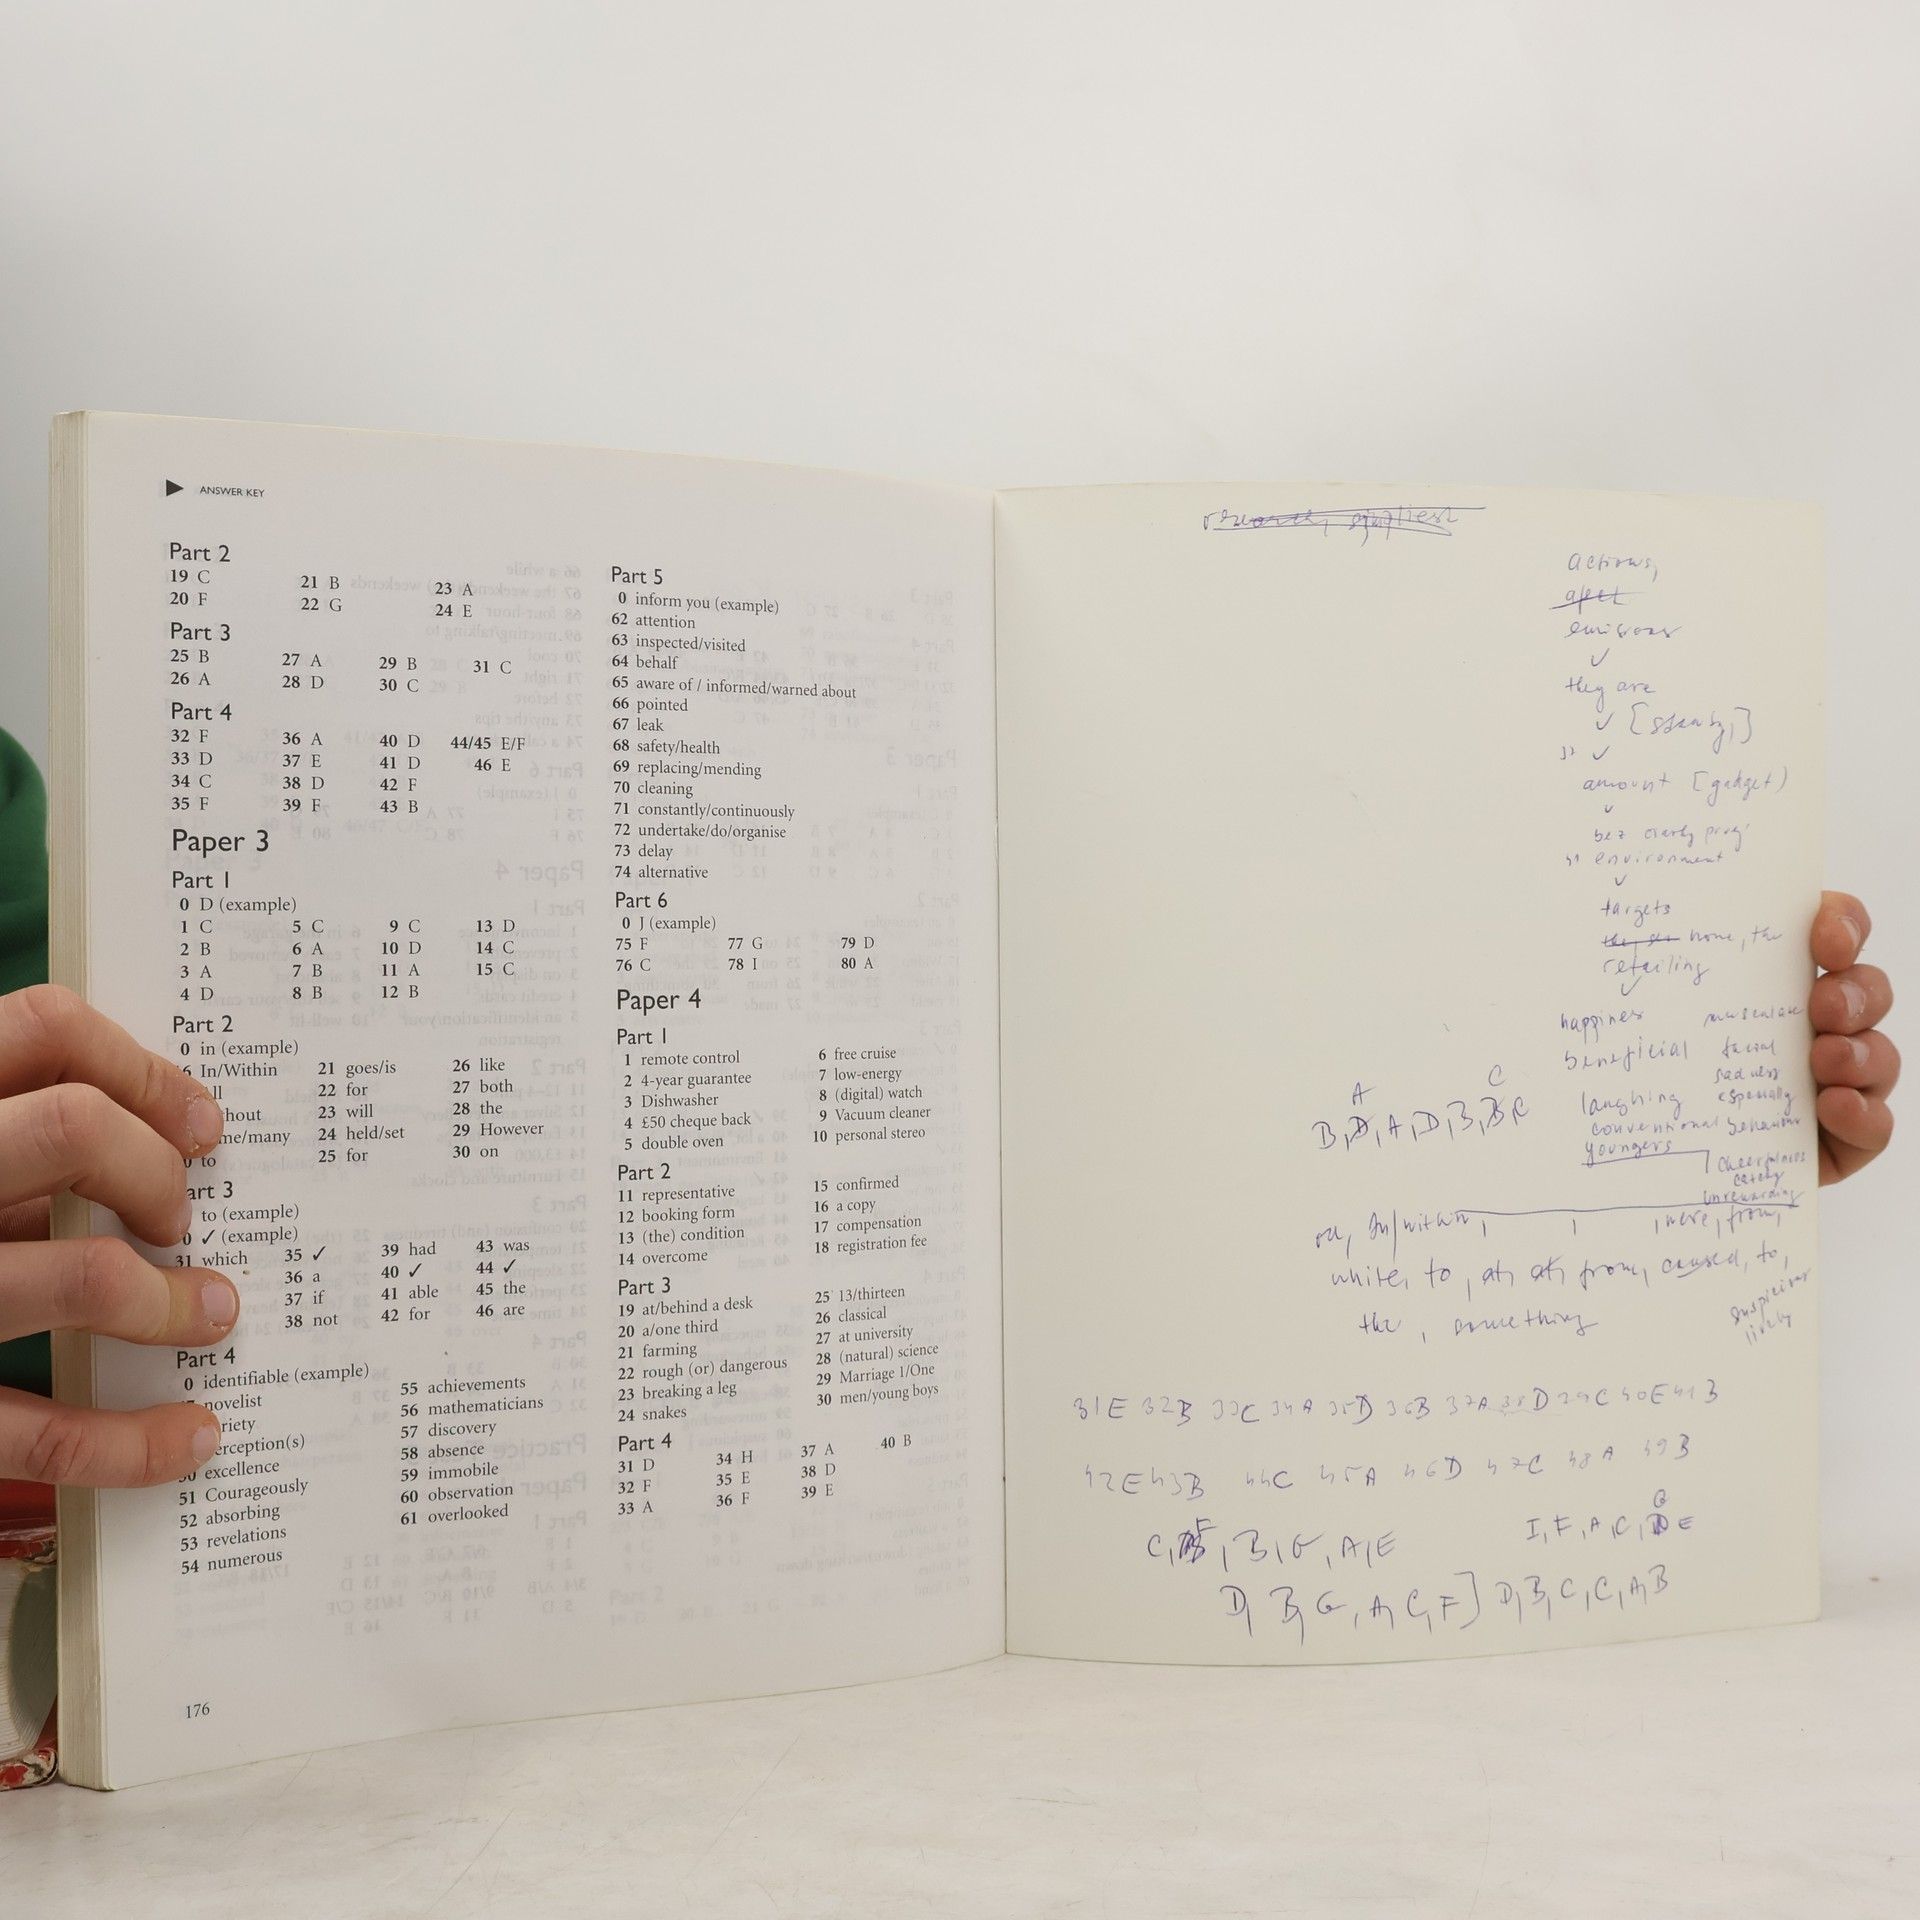 ANSWER KEY
Part 2
19 C 21 B 23 A
20 F 22 G 24 E
Part 3
25 B 27 A 29 B 31 C
26 A 28 D 30 C
Part 4
32 F 36 A 40 D 44/45 E/F
33 D 37 E 41 D 46 E
34 C 38 D 42 F
35 F 39 F 43 B
Paper 3
Part 1
0 D (example)
1 C 5 C 9 C 13 D
2 B 6 A 10 D 14 C
3 A 7 B 11 A 15 C
4 D 8 B 12 B
Part 2
0 in (example)
6 In/Within 21 goes/is 26 like
ll 22 for 27 both
hout 23 will 28 the
me/many 24 held/set 29 However
0 to 25 for 30 on
art 3
to (example)
0 ✓ (example)
31 which 35 ✓ 39 had 43 was
36 a 40 ✓ 44 ✓
37 if 41 able 45 the
38 not 42 for 46 are
Part 4
0 identifiable (example)
novelist 55 achievements
riety 56 mathematicians
erception(s) 57 discovery
50 excellence 58 absence
51 Courageously 59 immobile
52 absorbing 60 observation
53 revelations 61 overlooked
54 numerous
176
Part 5
0 inform you (example)
62 attention
63 inspected/visited
64 behalf
65 aware of / informed/warned about
66 pointed
67 leak
68 safety/health
69 replacing/mending
70 cleaning
71 constantly/continuously
72 undertake/do/organise
73 delay
74 alternative
Part 6
0 J (example)
75 F 77 G 79 D
76 C 78 I 80 A
Paper 4
Part 1
1 remote control 6 free cruise
2 4-year guarantee 7 low-energy
3 Dishwasher 8 (digital) watch
4 £50 cheque back 9 Vacuum cleaner
5 double oven 10 personal stereo
Part 2
11 representative 15 confirmed
12 booking form 16 a copy
13 (the) condition 17 compensation
14 overcome 18 registration fee
Part 3
19 at/behind a desk 25 13/thirteen
20 a/one third 26 classical
21 farming 27 at university
22 rough (or) dangerous 28 (natural) science
23 breaking a leg 29 Marriage 1/One
24 snakes 30 men/young boys
Part 4
31 D 34 H 37 A 40 B
32 F 35 E 38 D
33 A 36 F 39 E
actions,
✓
they are
✓
✓
amount [gadget)
environment
✓
targets
none, the
retailing
✓
happiness
beneficial facial
sadness
laughing especially
conventional behaviour
youngers
cheerfulness
unrewarding
A C
B, D, A, D, B, B, C
on, In/within, , , were, from,
white, to, at, at, from, caused, to,
the, something
suspicious
31E 32B 33C 34A 35D 36B 37A 38D 39C 40E 41B
42E 43B 44C 45A 46D 47C 48A 49B
F G
C, B, G, A, E I, F, A, C, E
D, B, G, A, C, F] D, B, C, C, A, B